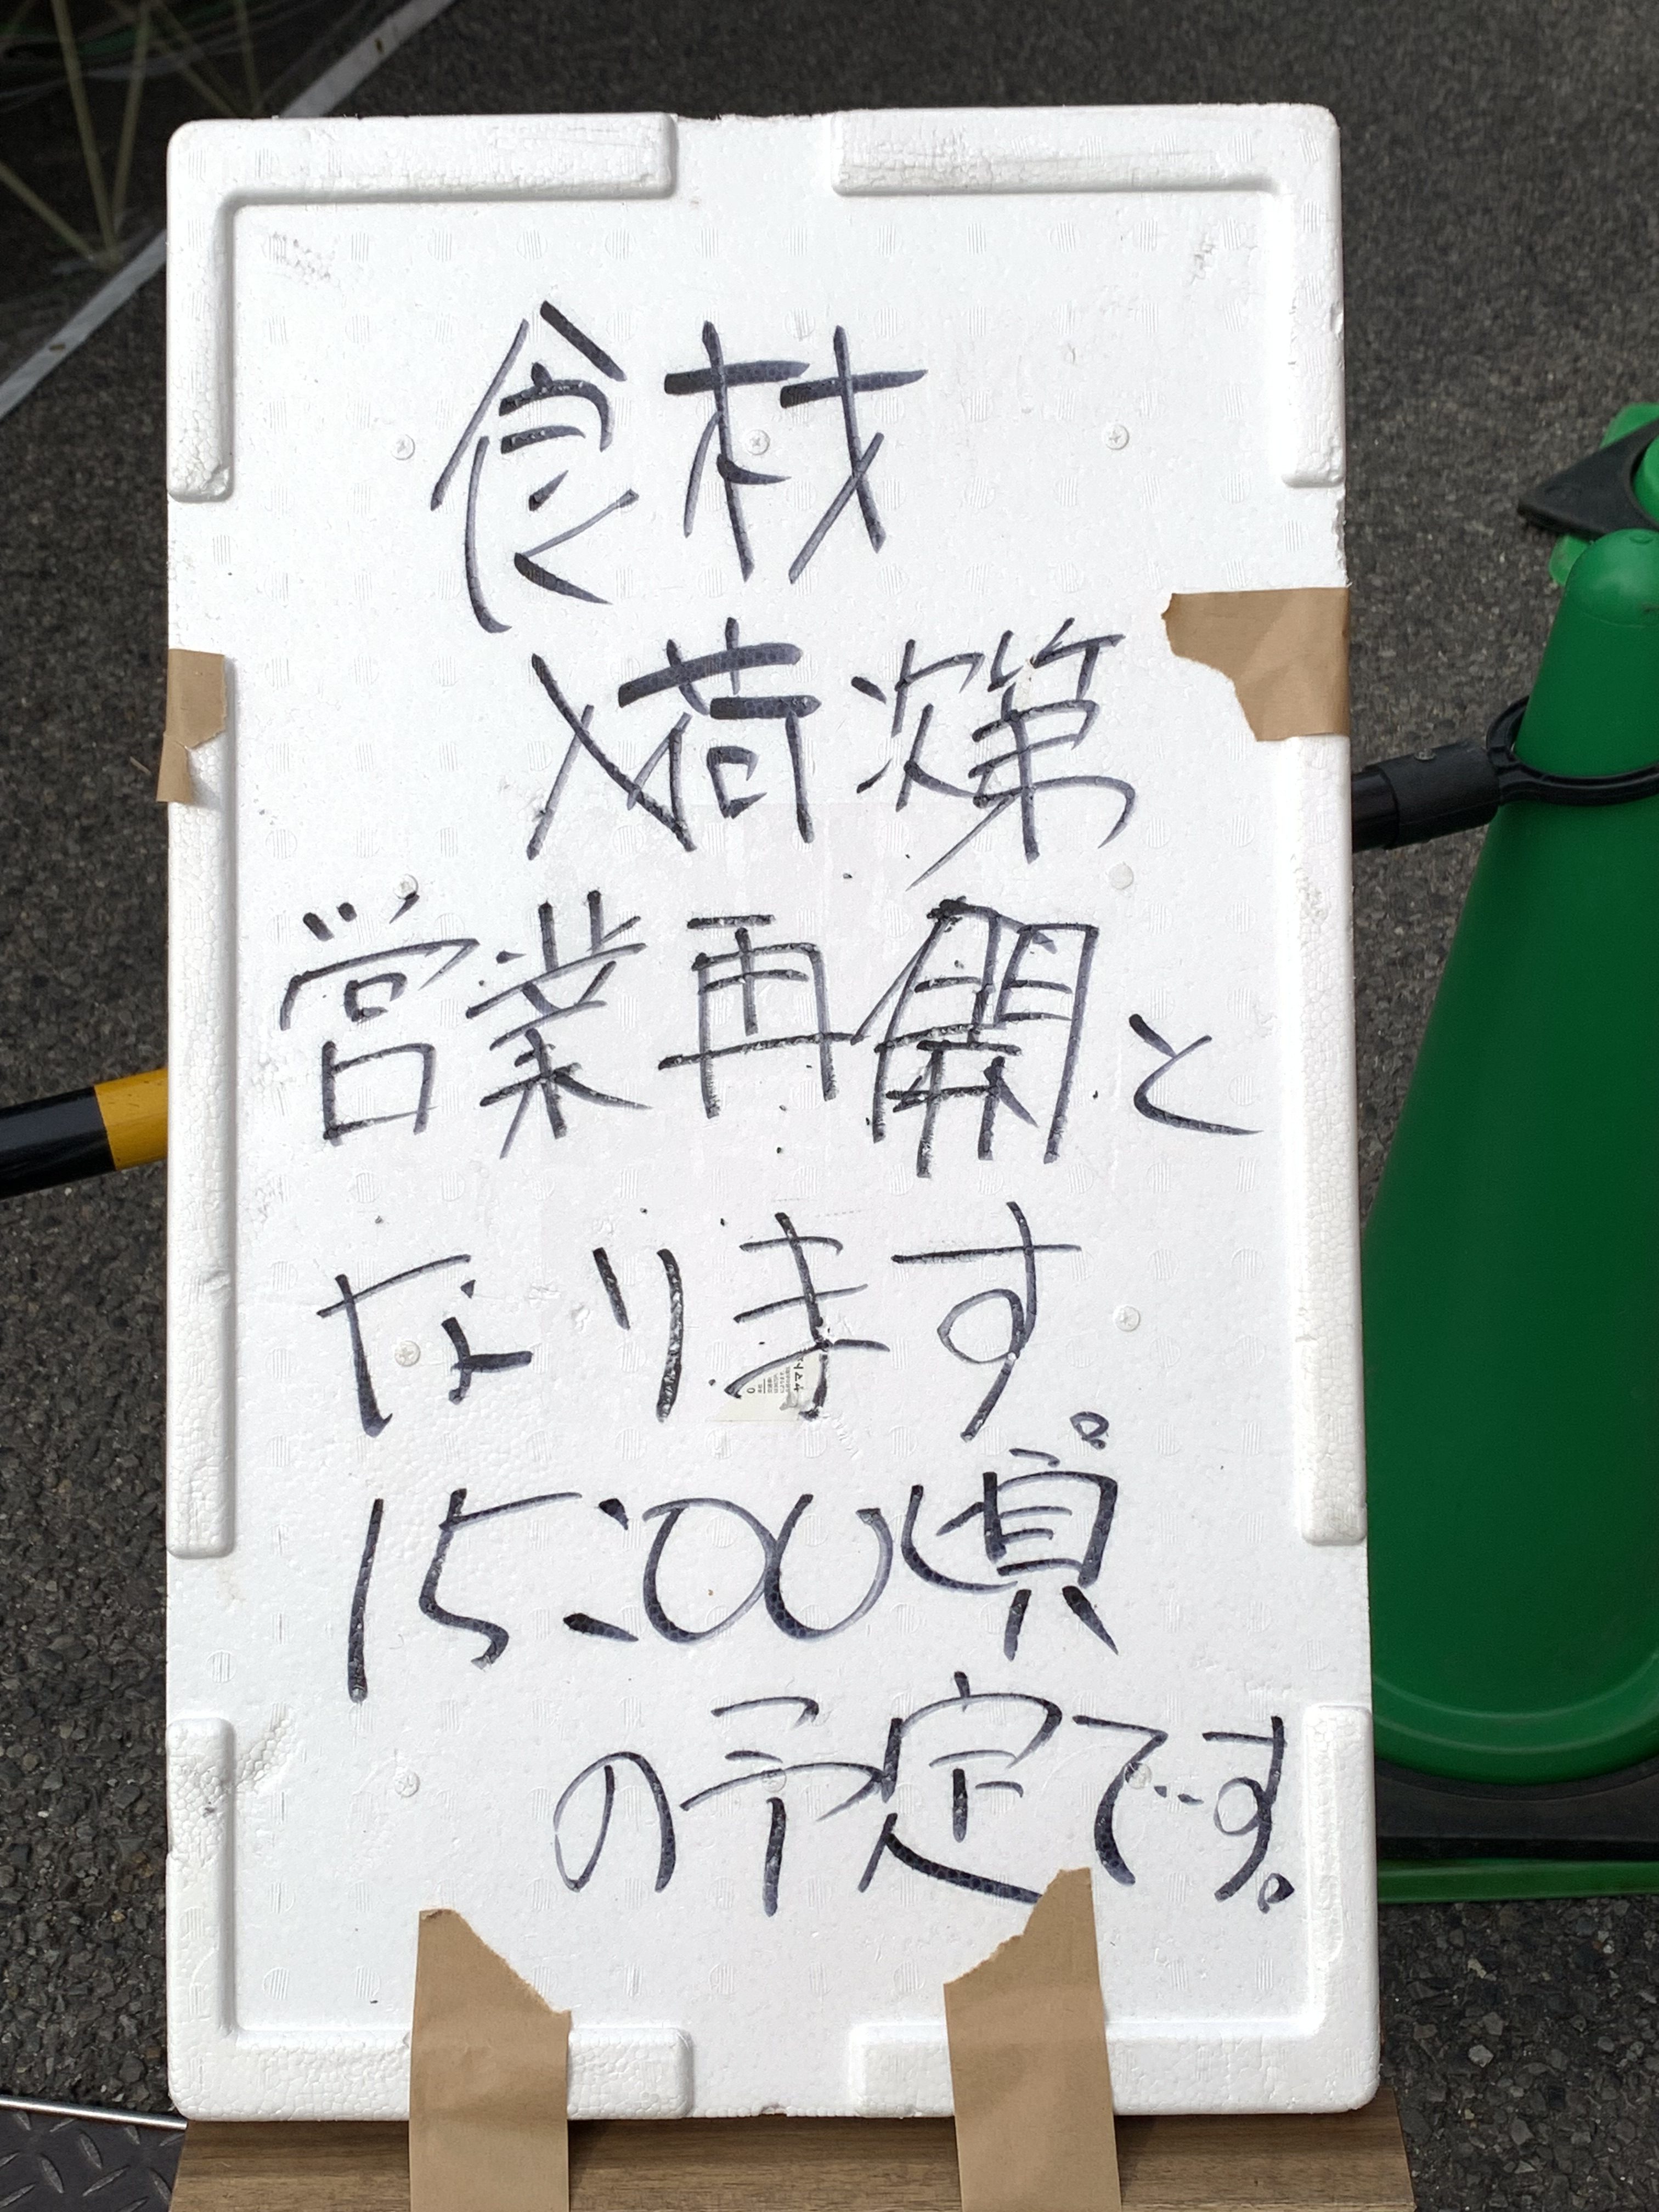 食材
入荷次第
営業再開と
なります。
15:00頃
の予定です。